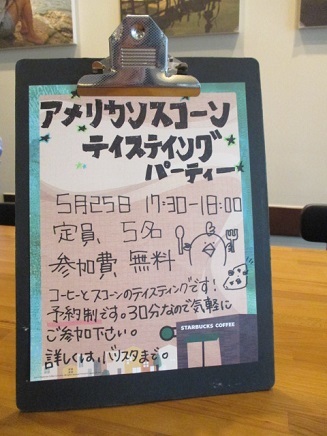 アメリカンスコーン
テイスティング
パーティー
5月25日 17:30-18:00
定員 5名
参加費 無料
コーヒーとスコーンのテイスティングです!
予約制です。30分なので気軽に
ご参加下さい。
詳しくは、バリスタまで。
STARBUCKS COFFEE